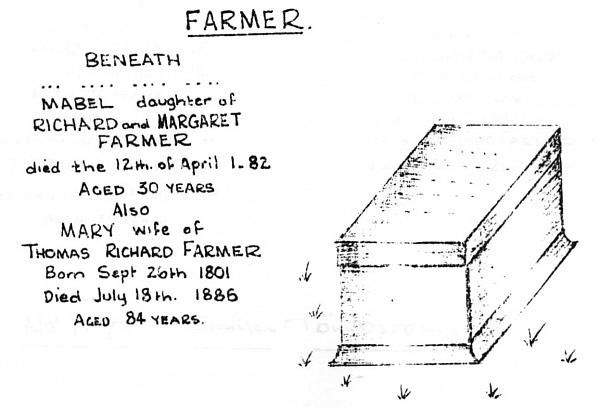 FARMER.
BENEATH
... .... .... ....
MABEL daughter of
RICHARD and MARGARET
FARMER
died the 12th. of April 1-82
AGED 30 YEARS
Also
MARY wife of
THOMAS RICHARD FARMER
Born Sept 26th 1801
Died July 18th. 1886
AGED 84 YEARS.